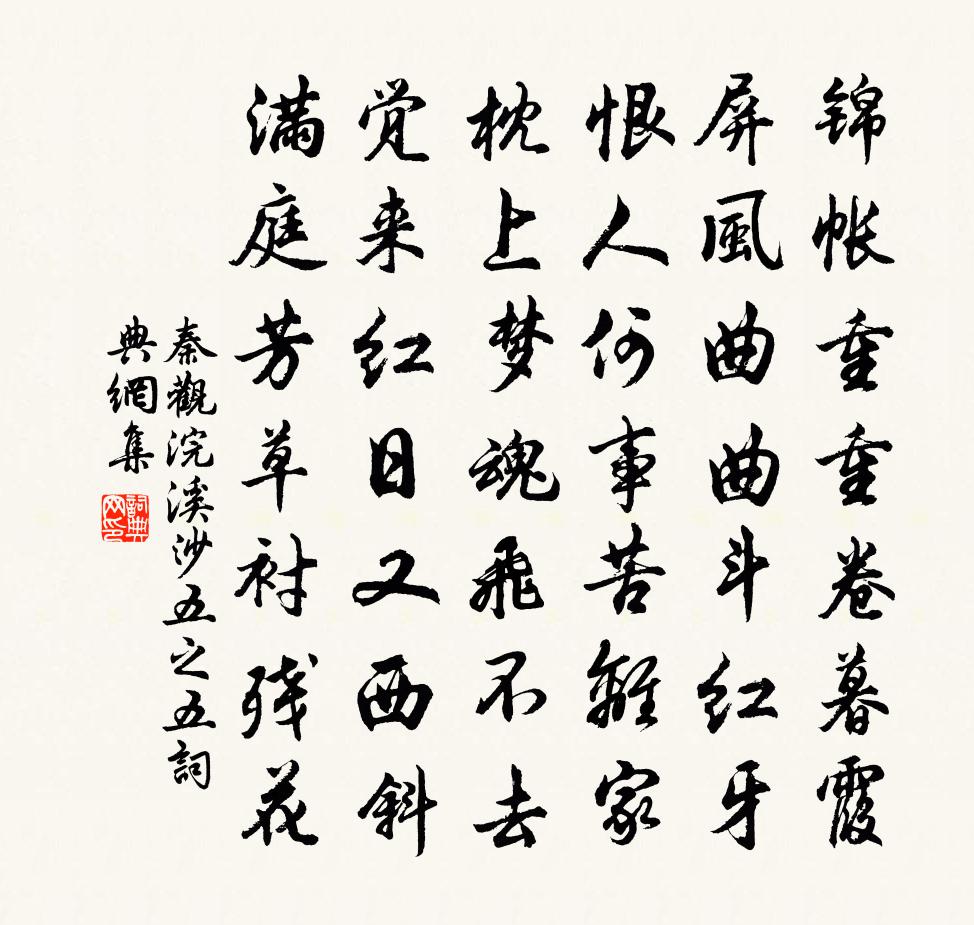 锦帐重重卷暮霞
屏風曲曲斗红牙
恨人何事苦離家
枕上梦魂飛不去
觉来红日又西斜
满庭芳草衬残花
秦觀浣溪沙五之五詞
典網集
詞典網印